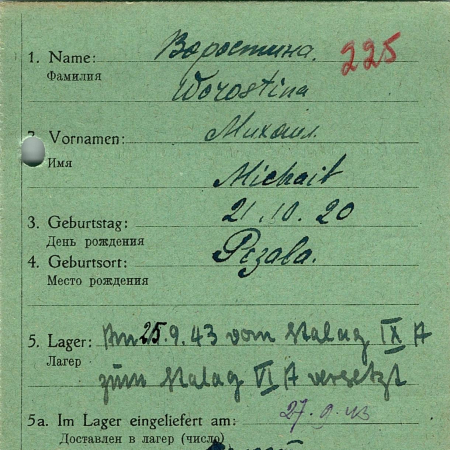 1. Name: Воростина. 225
Фамилия
Worostina
2. Vornamen: Михаил
Имя
Michail
3. Geburtstag: 21.10.20
День рождения
4. Geburtsort: Pezala.
Место рождения
5. Lager: Am 25.9.43 vom Stalag IX A
Лагерь
zum Stalag VI A versetzt
5a. Im Lager eingeliefert am: 27.9.43
Доставлен в лагерь (число)